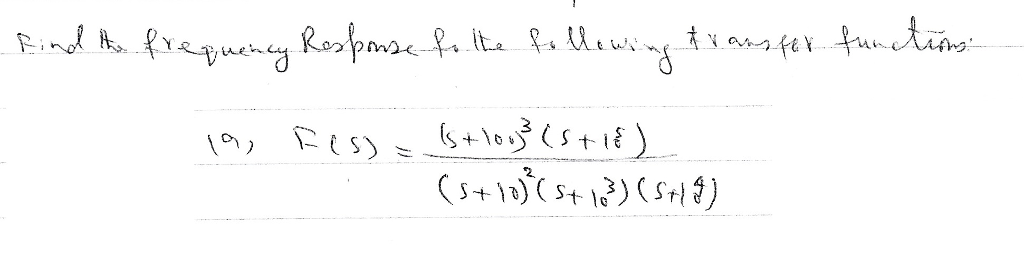 Find the frequency Response fo the following transfer functions:
(a) F(s) = (s+100)^3 (s+10^5)
(s+10)^2 (s+10^3) (s+10^4)